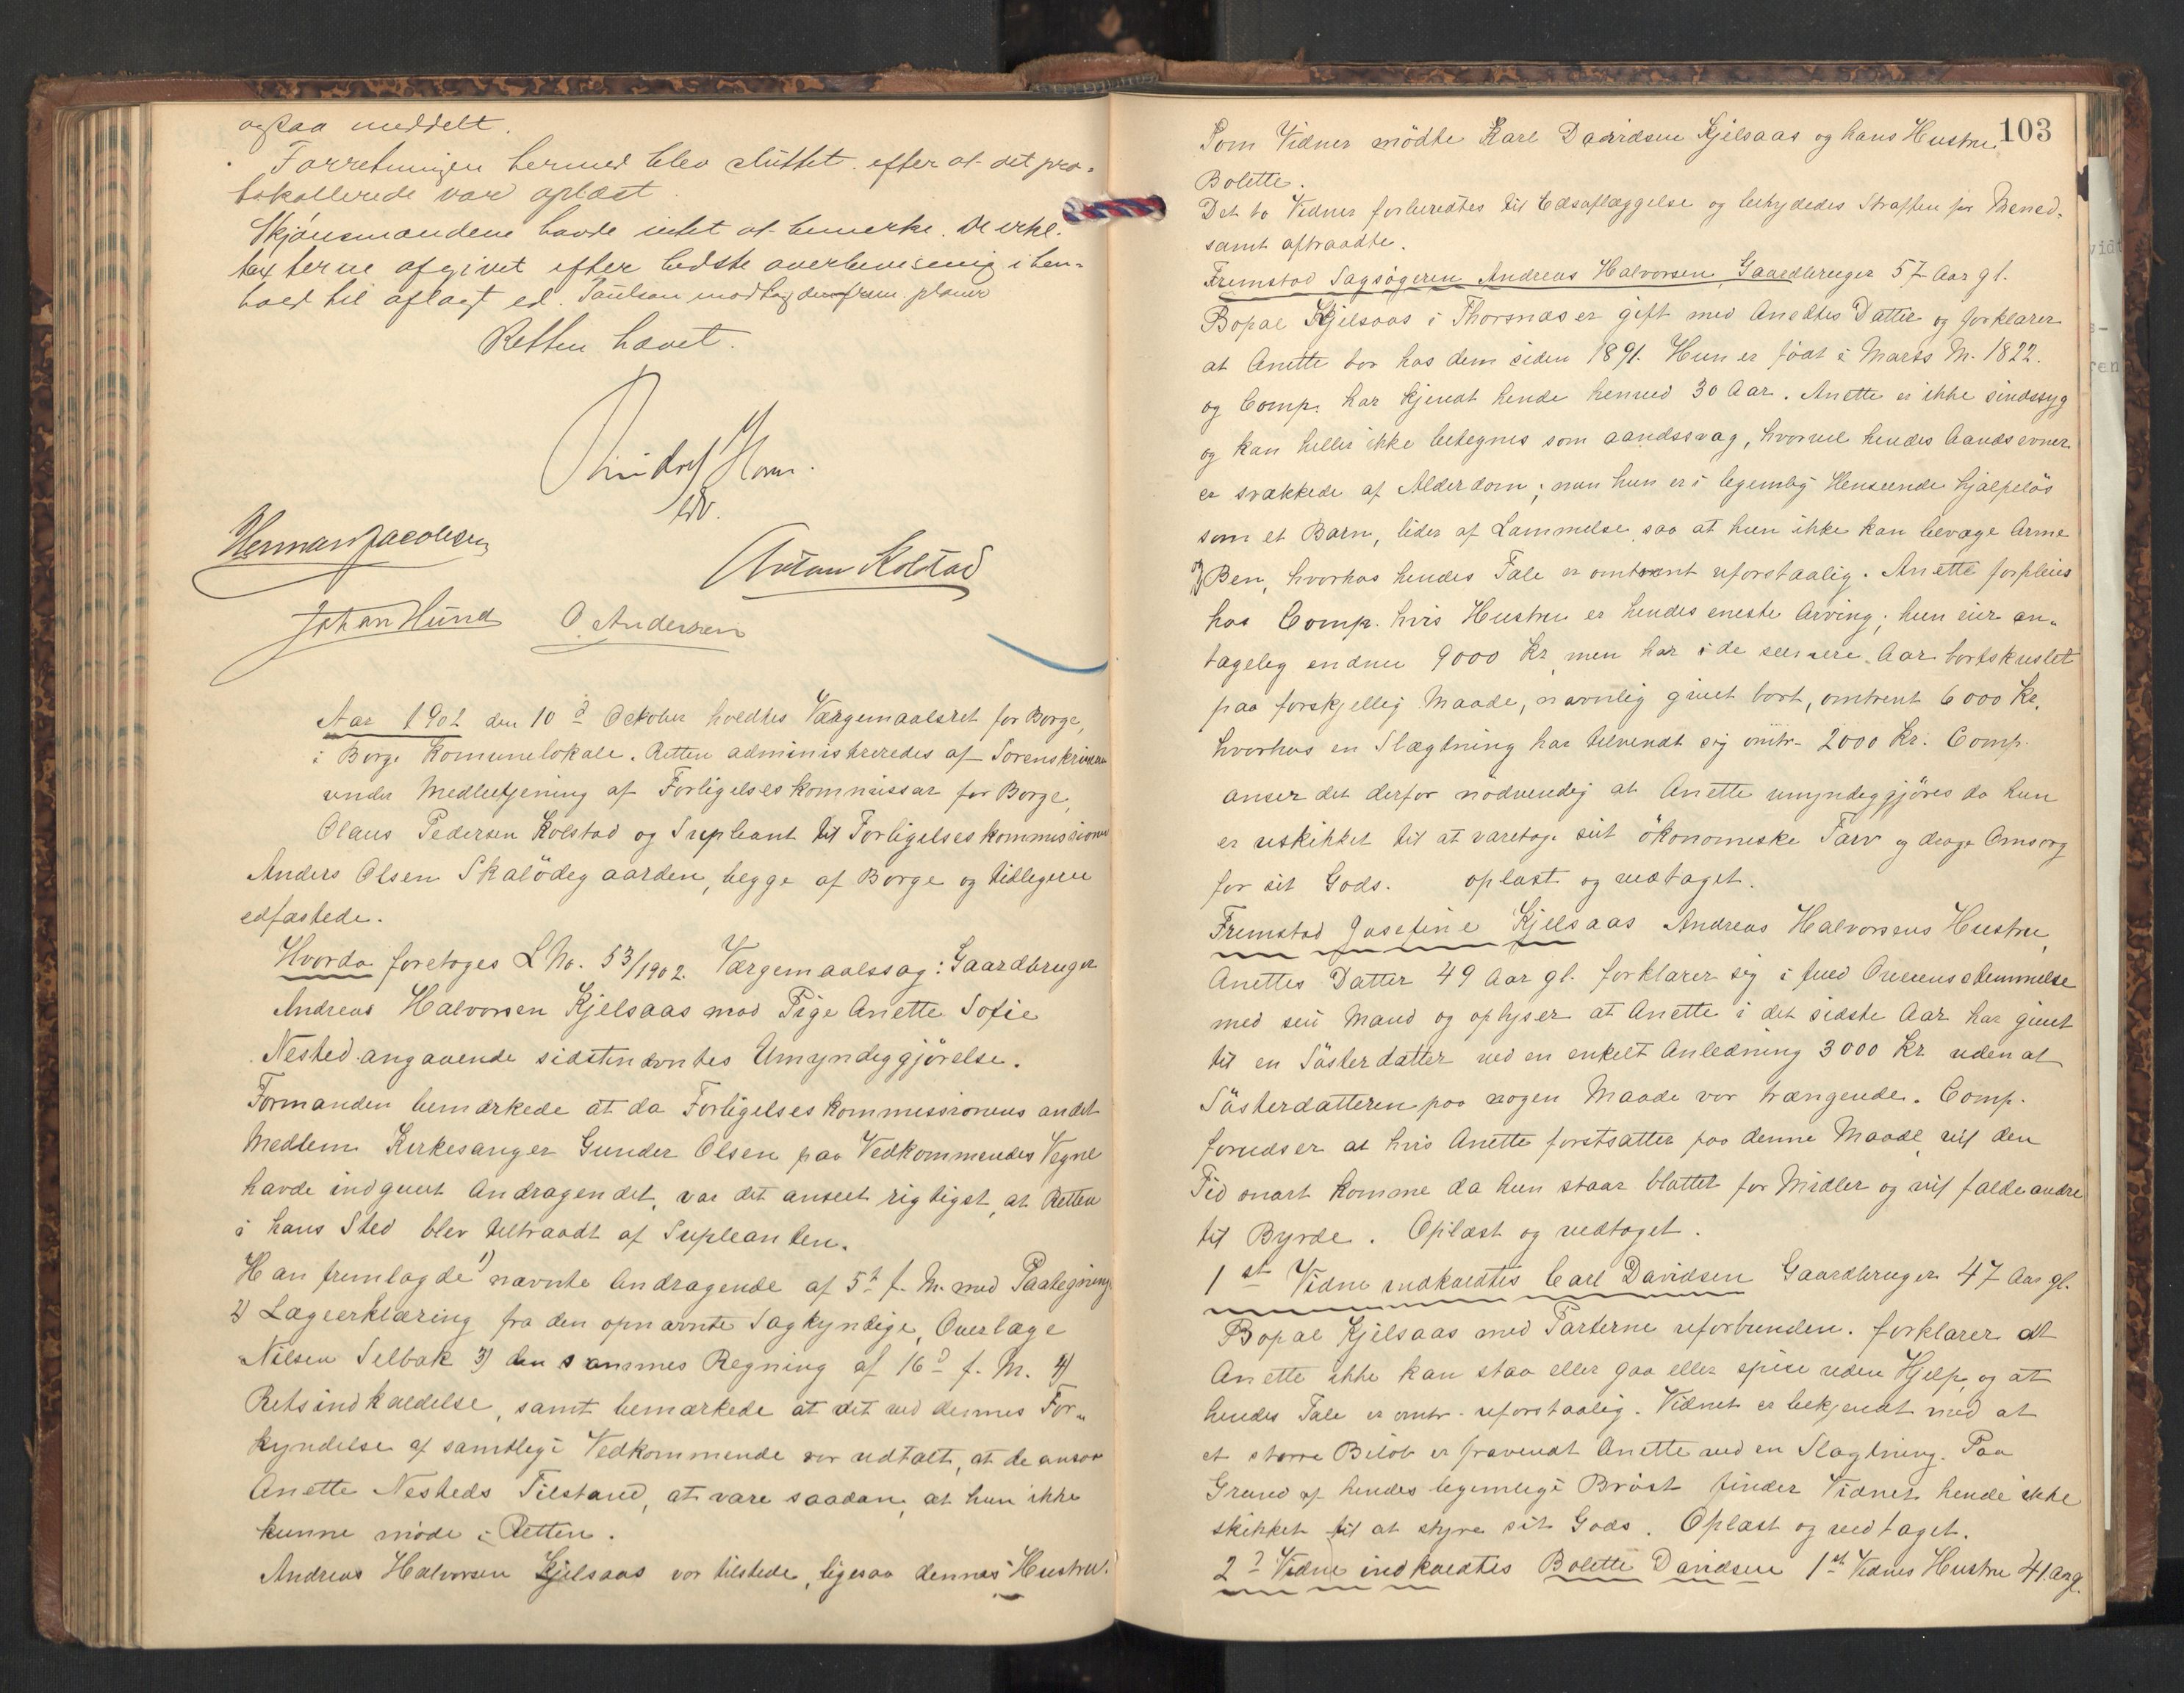 ogsaa meddelt.
Forretningen hermed blev sluttet efter at det pro-
tokollerede var oplæst
Skjönsmændene havde intet at bemerke. De erkl.
taxterne afgivet efter bedste overbevisning i hen-
hold til aflagt ed. Paulsen modtog
Retten hævet.
Horn.
Herman Jacobsen
Anton Kolstad
Johan Hund O. Andersen
Aar 1902 den 10d Oktober holdtes Værgemaalsret for Borge,
i Borge Komunelokale. Retten administreredes af Sorenskriveren
under Medbetjening af Forligelseskommissær for Borge,
Olaus Pedersen Kolstad og Supleant til Forligelseskommissionen
Anders Olsen Skalödegaarden, begge af Borge og tidligere
edfæstede.
Hvorda foretoges L No. 53/1902. Værgemaalssag: Gaardbruger
Andreas Halvorsen Kjelsaas mod Pige Anette Sofie
Nested angaaende sidstnævntes Umyndiggjörelse.
Formanden bemærkede at da Forligelseskommissionens andet
Medlem Kirkesanger Gunder Olsen paa Vedkommendes Vegne
havde indgivet Andragendet, var det anseet rigtigst, at Retten
i hans Sted blev tiltraadt af Supleanten.
Han fremlagde 1) nævnte Andragende af 5t f. M. med Paategning
2) Lægeerklæring fra den opnævnte Sagkyndige, Overlæge
Nilsen Selbak 3) den sammes Regning af 16d f. M. 4)
Retsindkaldelse, samt bemærkede at det ved dennes For-
kyndelse af samtlige Vedkommende var udtalt, at de ansaa
Anette Nesteds Tilstand, at være saadan, at hun ikke
kunne möde i Retten.
Andreas Halvorsen Kjelsaas var tilstede, ligesaa dennes Hustru.
103
Som Vidner mödte Karl Davidsen Kjelsaas og hans Hustru
Bolette.
Det to Vidner forberedtes til Edsaflæggelse og betydedes Straffen for Mened,
samt aftraadte.
Fremstod Sagsögeren Andreas Halvorsen Gaardbruger 57 Aar gl.
Bopæl Kjelsaas i Thorsnæs er gift med Anettes Datter og forklarer
at Anette bor hos dem siden 1891. Hun er födt i Marts M. 1822.
og Comp. har kjendt hende henved 30 Aar. Anette er ikke sindssyg
og kan heller ikke betegnes som aandssvag, hvorvel hendes Aandsevner
er svækkede af Alderdom; men hun er i legemlig Henseende hjælpelös
som et Barn, lider af Lammelse saa at hun ikke kan bevæge Arme
og Ben, hvorhos hendes Tale er omtrent uforstaalig. Anette forpleies
hos Comp. hvis Hustru er hendes eneste Arving; hun eier an-
tagelig endnu 9000 Kr, men har i de seenere Aar bortskuslet
paa forskjellig Maade, navnlig givet bort, omtrent 6000 Kr.
hvorhos en Slægtning har tilvendt sig omtr. 2000 Kr. Comp.
anser det derfor nödvendig at Anette umyndiggjöres da hun
er uskikket til at varetage sit ökonomiske Tarv og drage Omsorg
for sit Gods. oplæst og vedtaget.
Fremstod Josefine Kjelsaas Andreas Halvorsens Hustru,
Anettes Datter 49 Aar gl. forklarer sig i fuld Overensstemmelse
med sin Mand og oplyser at Anette i det sidste Aar har givet
til en Sösterdatter ved en enkelt Anledning 3000 Kr uden at
Sösterdatteren paa nogen Maade var trængende. Comp.
forudser at hvis Anette forstsætter paa denne Maade vil den
Tid snart komme da hun staar blottet for Midler og vil falde andre
til Byrde. Oplæst og vedtaget.
1st Vidne indkaldtes Carl Davidsen Gaardbruger 47 Aar gl.
Bopæl Kjelsaas med Parterne uforbunden. forklarer at
Anette ikke kan staa eller gaa eller spise uden Hjelp, og at
hendes Tale er omtr. uforstaalig. Vidnet er bekjendt med at
et större Belöb er fravendt Anette ved en Slægtning. Paa
Grund af hendes legemlige Bröst finder Vidnet hende ikke
skikket til at styre sit Gods. Oplæst og vedtaget.
2d Vidne indkaldtes Bolette Davidsen 1st Vidnes Hustru 41 Aar gl.